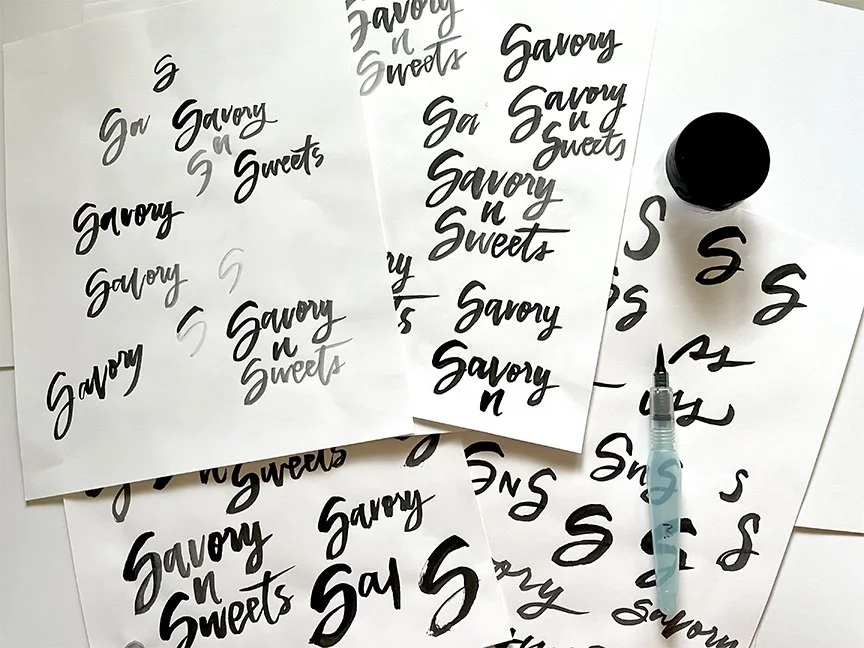 S
Sa Savory
n
S Sweets
Savory
Savory
S
S
Savory
n
Sweets
Savory
Savory
n
Sweets
Savory
Sa
Savory
n
Sweets
Savory
n
Sweets
Savory
Savory
n
S
S
S
SnS
SNS
S
S
S
S
Savory
n
Sweets
Savory
Savory
n
Sweets
Sal
S